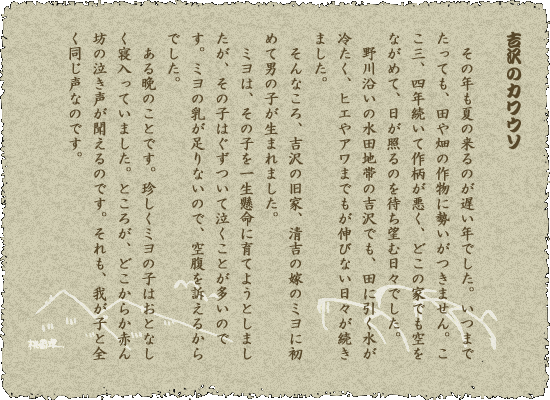 吉沢のカワウソ
その年も夏の来るのが遅い年でした。いつまで
たっても、田や畑の作物に勢いがつきません。こ
こ三、四年続いて作柄が悪く、どこの家でも空を
ながめて、日が照るのを待ち望む日々でした。
野川沿いの水田地帯の吉沢でも、田に引く水が
冷たく、ヒエやアワまでもが伸びない日々が続き
ました。
そんなころ、吉沢の旧家、清吉の嫁のミヨに初
めて男の子が生まれました。
ミヨは、その子を一生懸命に育てようとしまし
たが、その子はぐずついて泣くことが多いので
す。ミヨの乳が足りないので、空腹を訴えるから
でした。
ある晩のことです。珍しくミヨの子はおとなし
く寝入っていました。ところが、どこからか赤ん
坊の泣き声が聞えるのです。それも、我が子と全
く同じ声なのです。